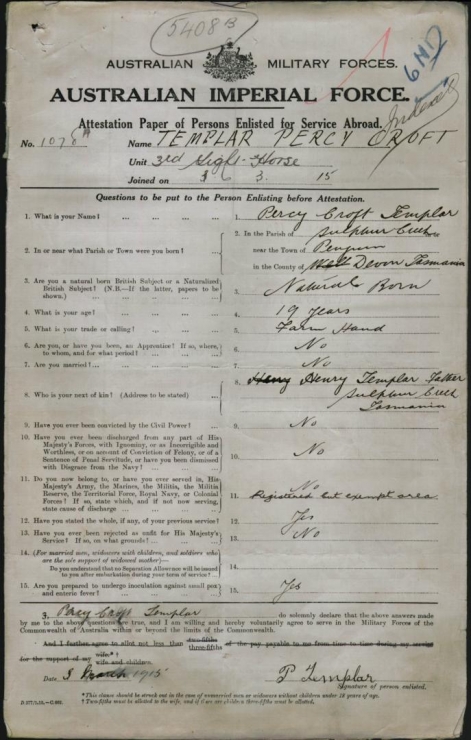 5408 B
AUSTRALIAN MILITARY FORCES.
AUSTRALIAN IMPERIAL FORCE.
Attestation Paper of Persons Enlisted for Service Abroad.
No. 1078A Name TEMPLAR PERCY CROFT
Unit 3rd Light Horse
Joined on 3 3. 15
Questions to be put to the Person Enlisting before Attestation.
1. What is your Name? ... ... ... 1. Percy Croft Templar
2. In or near what Parish or Town were you born? ... 2. In the Parish of Sulphur Creek
near the Town of Penguin
in the County of Devon Tasmania
3. Are you a natural born British Subject or a Naturalized British Subject? (N.B.—If the latter, papers to be shown.) ... 3. Natural Born
4. What is your age? ... ... ... 4. 19 years
5. What is your trade or calling? ... ... 5. Farm Hand
6. Are you, or have you been, an Apprentice? If so, where, to whom, and for what period? ... 6. No
7. Are you married? ... ... ... 7. No
8. Who is your next of kin? (Address to be stated) ... 8. Henry Henry Templar Father
Sulphur Creek
Tasmania
9. Have you ever been convicted by the Civil Power? ... 9. No
10. Have you ever been discharged from any part of His Majesty's Forces, with Ignominy, or as Incorrigible and Worthless, or on account of Conviction of Felony, or of a Sentence of Penal Servitude, or have you been dismissed with Disgrace from the Navy? ... 10. No
11. Do you now belong to, or have you ever served in, His Majesty's Army, the Marines, the Militia, the Militia Reserve, the Territorial Force, Royal Navy, or Colonial Forces? If so, state which, and if not now serving, state cause of discharge ... 11. No
Registered but exempt area.
12. Have you stated the whole, if any, of your previous service? 12. Yes
13. Have you ever been rejected as unfit for His Majesty's Service? If so, on what grounds? ... 13. No
14. (For married men, widowers with children, and soldiers who are the sole support of widowed mother)—
Do you understand that no Separation Allowance will be issued to you after embarkation during your term of service? 14.
15. Are you prepared to undergo inoculation against small pox and enteric fever? ... 15. Yes
I, Percy Croft Templar do solemnly declare that the above answers made
by me to the above questions are true, and I am willing and hereby voluntarily agree to serve in the Military Forces of the
Commonwealth of Australia within or beyond the limits of the Commonwealth.
And I further agree to allot not less than two-fifths three-fifths of the pay payable to me from time to time during my service
for the support of my wife.* wife and children.
Date 3 March 1915
P Templar
Signature of person enlisted.
*This clause should be struck out in the case of unmarried men or widowers without children under 18 years of age.
† Two-fifths must be allotted to the wife, and if there are children three-fifths must be allotted.